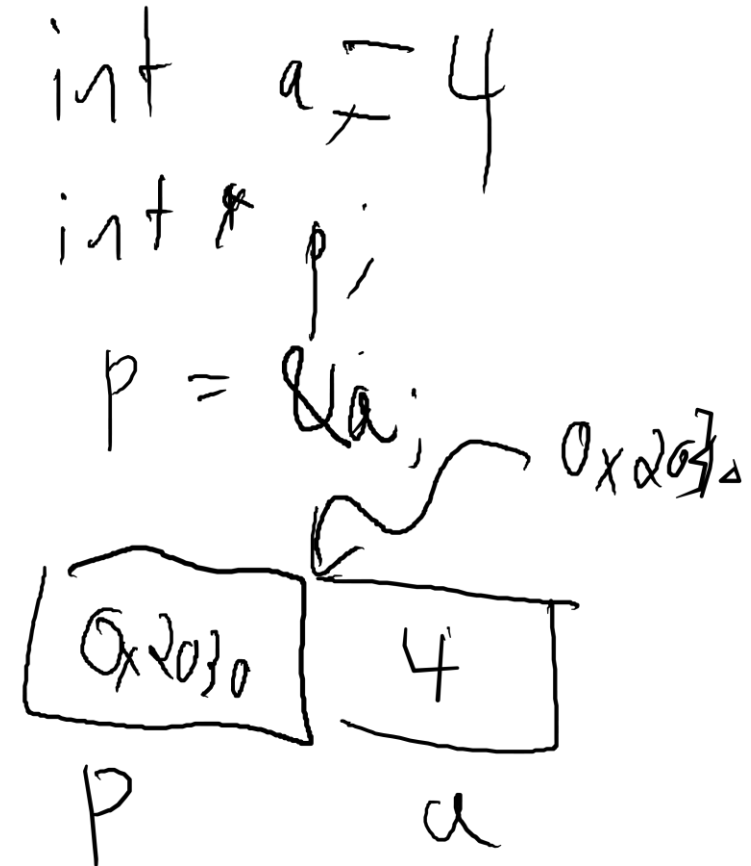 int a = 4
int * p;
p = &a;
0x2030
0x2030 4
p a